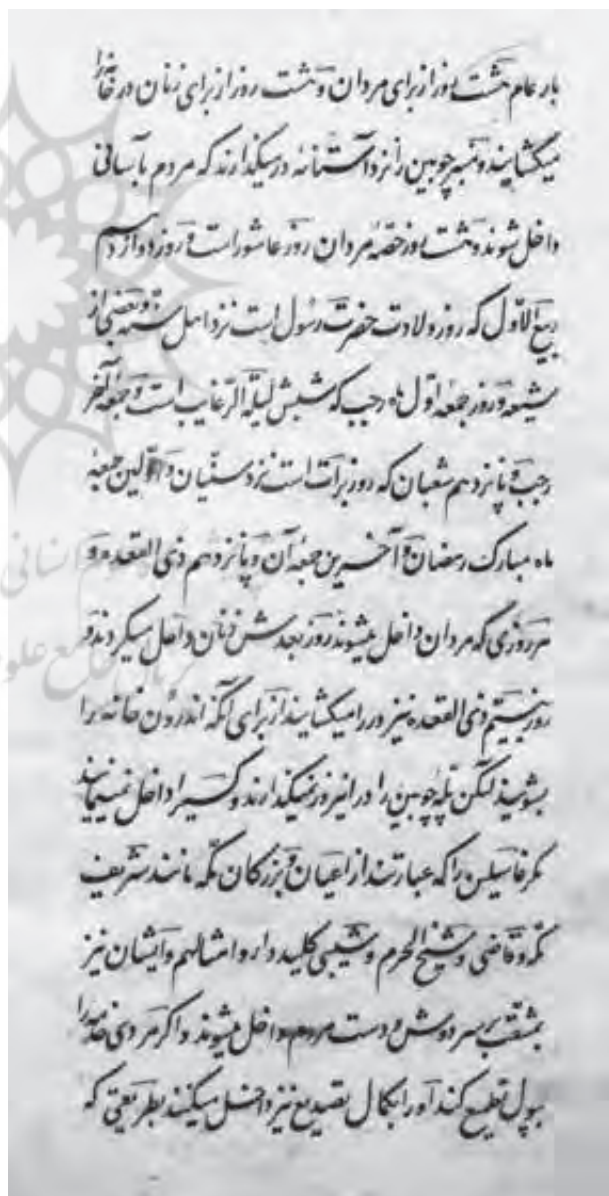 بار عام هشت روز از برای مردان و هشت روز از برای زنان در خانه را
میکشایند و منبر چوبین را نزد آستانه در میکذارند که مردم بآسانی
داخل شوند و هشت روز حصّهٔ مردان روز عاشوراست و روز دوازدهم
ربیع الاوّل که روز ولادت حضرت رسول است نزد اهل سنّة و بعضی از
شیعه و روز جمعه اوّل ماه رجب که شبش لیلة الرّغایب است و جمعهٔ آخر
رجب و پانزدهم شعبان که روز برات است نزد سنّیان و اوّلین جمعهٔ
ماه مبارک رمضان و آخرین جمعهٔ آن و پانزدهم ذی القعده و
هر روزی که مردان داخل میشوند روز بعدش زنان داخل میکردند و
روز بیستم ذی القعده نیز در را میکشایند از برای آنکه اندرون خانه را
بشویند لیکن پلّه چوبین را در انروز نمیکذارند و کسیرا داخل نمینمایند
مکر غاسلین را که عبارتند از اعیان و بزرکان مکّه مانند شریف
مکّه و قاضی و شیخ الحرم و شیبی کلید دار و امثالهم و ایشان نیز
بمشقت بر سر دوش و دست مردم داخل میشوند و اکر مردی خانه را
بپول تطمیع کند او را بکمال تصدیع نیز داخل میکنند بطریقی که